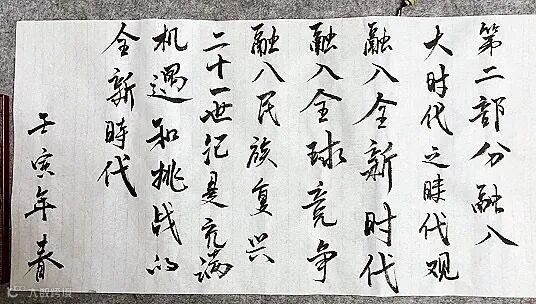 第二部分融入
大时代之時代观
融入全新时代
融入全球竞争
融入民族复兴
二十一世纪是充满
机遇和挑战的
全新時代
壬寅年春
大数跨境